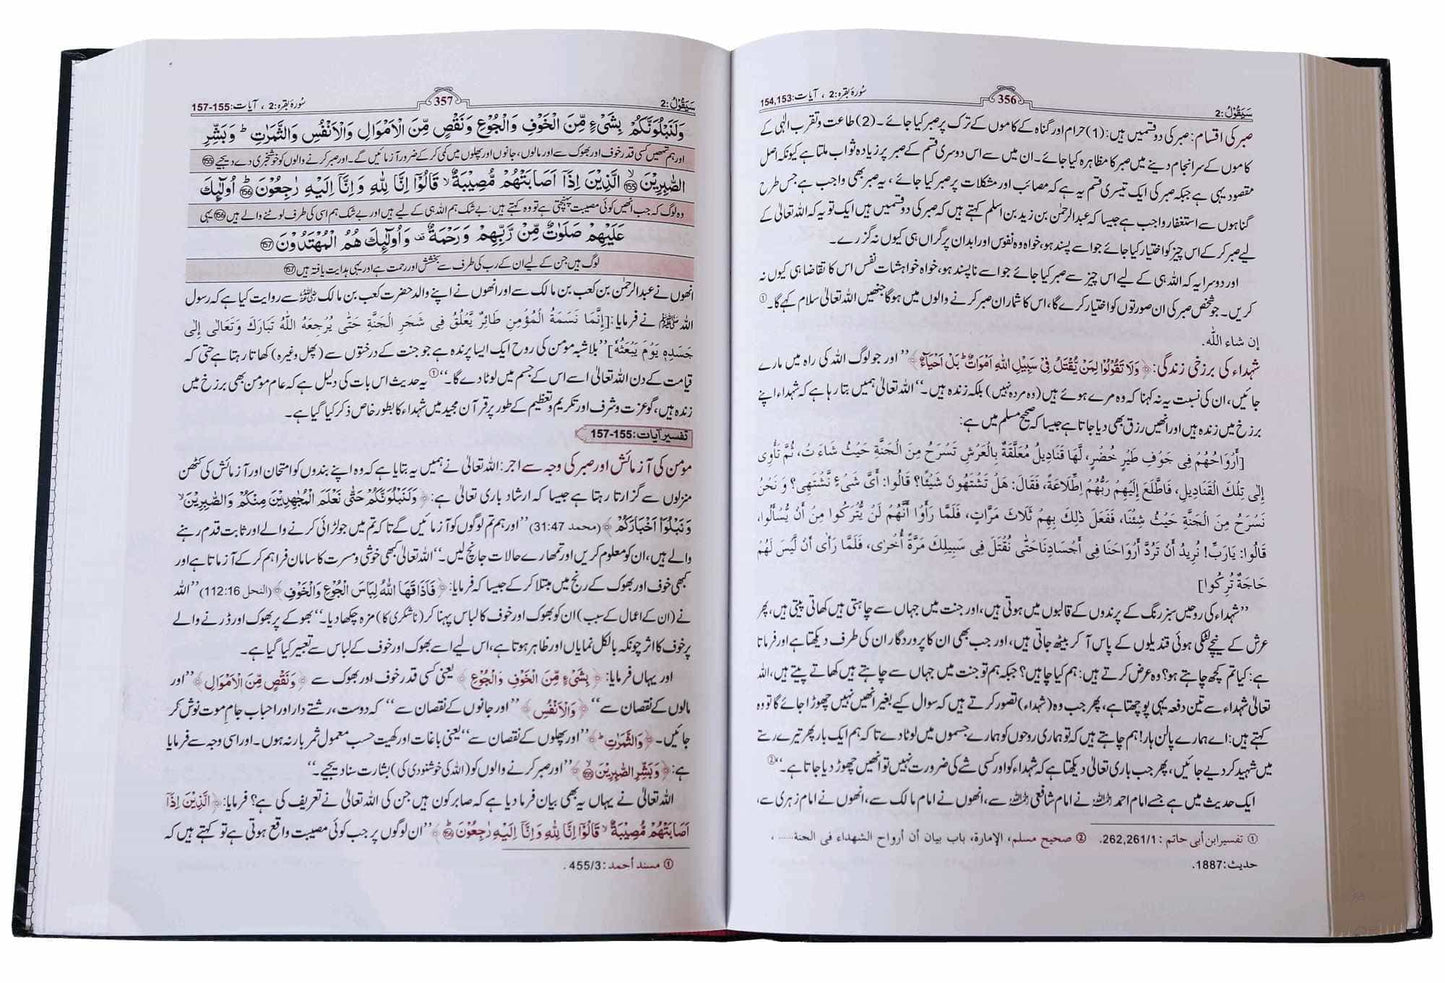 سَيَقُوْلُ: 2
356
سُورهٔ بقره: 2 ، آيات: 154,153
صبر کی اقسام: صبر کی دو قسمیں ہیں: (1) حرام اور گناہ کے کاموں کے ترک پر صبر کیا جائے۔ (2) طاعت و تقرب الٰہی کے
کاموں کے سرانجام دینے میں صبر کا مظاہرہ کیا جائے۔ ان میں سے اس دوسری قسم کے صبر پر زیادہ ثواب ملتا ہے کیونکہ اصل
مقصود یہی ہے جبکہ صبر کی ایک تیسری قسم یہ ہے کہ مصائب اور مشکلات پر صبر کیا جائے ، یہ صبر بھی واجب ہے جس طرح
گناہوں سے استغفار واجب ہے جیسا کہ عبدالرحمٰن بن زید بن اسلم کہتے ہیں کہ صبر کی دو قسمیں ہیں ایک تو یہ کہ اللہ تعالیٰ کے
لیے صبر کر کے اس چیز کو اختیار کیا جائے جو اسے پسند ہو، خواہ وہ نفوس اور ابدان پر گراں ہی کیوں نہ گزرے۔
اور دوسرا یہ کہ اللہ ہی کے لیے اس چیز سے صبر کیا جائے جو اسے ناپسند ہو، خواہ خواہشات نفس اس کا تقاضا ہی کیوں نہ
کریں۔ جو شخص صبر کی ان صورتوں کو اختیار کرے گا، اس کا شمار ان صبر کرنے والوں میں ہوگا جنھیں اللہ تعالیٰ سلام کہے گا۔ ①
إن شاء اللّٰه.
شہداء کی برزخی زندگی: ﴿ وَلَا تَقُوْلُوْا لِمَنْ يُّقْتَلُ فِيْ سَبِيْلِ اللّٰهِ اَمْوَاتٌ ۭ بَلْ اَحْيَاۗءٌ ﴾ ’’اور جو لوگ اللہ کی راہ میں مارے
جائیں، ان کی نسبت یہ نہ کہنا کہ وہ مرے ہوئے ہیں (وہ مردہ نہیں) بلکہ زندہ ہیں۔‘‘ اللہ تعالیٰ ہمیں بتا رہا ہے کہ شہداء اپنے
برزخ میں زندہ ہیں اور انھیں رزق بھی دیا جاتا ہے جیسا کہ صحیح مسلم میں ہے:
[أَرْوَاحُهُمْ فِی جَوْفِ طَيْرٍ خُضْرٍ، لَّهَا قَنَادِيلُ مُعَلَّقَةٌ بِالْعَرْشِ تَسْرَحُ مِنَ الْجَنَّةِ حَيْثُ شَاءَتْ، ثُمَّ تَأْوِی
إِلٰی تِلْكَ الْقَنَادِيلِ، فَاطَّلَعَ إِلَيْهِمْ رَبُّهُمُ إِطِّلَاعَةً، فَقَالَ: هَلْ تَشْتَهُونَ شَيْئًا؟ قَالُوا: أَیَّ شَیْءٍ نَشْتَهِی؟ وَ نَحْنُ
نَسْرَحُ مِنَ الْجَنَّةِ حَيْثُ شِئْنَا، فَفَعَلَ ذٰلِكَ بِهِمْ ثَلَاثَ مَرَّاتٍ، فَلَمَّا رَأَوْا أَنَّهُمْ لَنْ يُّتْرَكُوا مِنْ أَنْ يُّسْأَلُوا،
قَالُوا: يَارَبِّ! نُرِيدُ أَنْ تَرُدَّ أَرْوَاحَنَا فِی أَجْسَادِنَا حَتّٰی نُقْتَلَ فِی سَبِيلِكَ مَرَّةً أُخْرٰی، فَلَمَّا رَاٰی أَنْ لَّيْسَ لَهُمْ
حَاجَةٌ تُرِكُوا]
’’شہداء کی روحیں سبز رنگ کے پرندوں کے قالبوں میں ہوتی ہیں، اور جنت میں جہاں سے چاہتی ہیں کھاتی پیتی ہیں، پھر
عرش کے نیچے لٹکی ہوئی قندیلوں کے پاس آ کر بیٹھ جاتی ہیں، اور جب بھی ان کا پروردگار ان کی طرف دیکھتا ہے اور فرماتا
ہے: کیا تم کچھ چاہتے ہو؟ وہ عرض کرتے ہیں: ہم کیا چاہیں؟ جبکہ ہم تو جنت میں جہاں سے چاہتے ہیں کھاتے پیتے ہیں، اللہ
تعالیٰ شہداء سے تین دفعہ یہی پوچھتا ہے، پھر جب وہ (شہداء) تصور کرتے ہیں کہ سوال کیے بغیر انھیں نہیں چھوڑا جائے گا تو وہ
کہتے ہیں: اے ہمارے پالن ہار! ہم چاہتے ہیں کہ تو ہماری روحوں کو ہمارے جسموں میں لوٹا دے تا کہ ہم ایک بار پھر تیرے رستے
میں شہید کر دیے جائیں، پھر جب باری تعالیٰ دیکھتا ہے کہ شہداء کو اور کسی شے کی ضرورت نہیں تو انھیں چھوڑ دیا جاتا ہے۔‘‘②
ایک حدیث میں ہے جسے امام احمد رحمہ اللہ نے امام شافعی رحمہ اللہ سے، انھوں نے امام مالک سے، انھوں نے امام زہری سے،
① تفسیر ابن أبی حاتم : 262,261/1. ② صحيح مسلم، الإمارة، باب بيان أن أرواح الشهداء فی الجنة.....،
حديث: 1887.
سَيَقُوْلُ: 2
357
سُورهٔ بقره: 2 ، آيات: 155-157
وَلَنَبْلُوَنَّكُمْ بِشَيْءٍ مِّنَ الْخَوْفِ وَالْجُوْعِ وَنَقْصٍ مِّنَ الْاَمْوَالِ وَالْاَنْفُسِ وَالثَّمَرٰتِ ۭ وَبَشِّرِ
اور ہم تمھیں کسی قدر خوف اور بھوک سے اور مالوں، جانوں اور پھلوں میں کمی کر کے ضرور آزمائیں گے۔ اور صبر کرنے والوں کو خوشخبری دے دیجیے ⑮⑤
الصّٰبِرِيْنَ 155 الَّذِيْنَ اِذَآ اَصَابَتْهُمْ مُّصِيْبَةٌ ۙ قَالُوْٓا اِنَّا لِلّٰهِ وَاِنَّآ اِلَيْهِ رٰجِعُوْنَ 156 ۭ اُولٰۗىِٕكَ
وہ لوگ کہ جب انھیں کوئی مصیبت پہنچتی ہے تو وہ کہتے ہیں: بے شک ہم اللہ ہی کے لیے ہیں اور بے شک ہم اسی کی طرف لوٹنے والے ہیں 156 یہی
عَلَيْهِمْ صَلَوٰتٌ مِّنْ رَّبِّهِمْ وَرَحْمَةٌ ۣ وَاُولٰۗىِٕكَ هُمُ الْمُهْتَدُوْنَ 157
لوگ ہیں جن کے لیے ان کے رب کی طرف سے بخشش اور رحمت ہے اور یہی ہدایت یافتہ ہیں 157
انھوں نے عبدالرحمٰن بن کعب بن مالک سے اور انھوں نے اپنے والد حضرت کعب بن مالک رضی اللہ عنہ سے روایت کیا ہے کہ رسول
اللہ ﷺ نے فرمایا: [إِنَّمَا نَسَمَةُ الْمُؤْمِنِ طَائِرٌ يَّعْلُقُ فِی شَجَرِ الْجَنَّةِ حَتّٰی يُرْجِعَهُ اللّٰهُ تَبَارَكَ وَتَعَالٰی إِلٰی
جَسَدِهِ يَوْمَ يَبْعَثُهُ] ’’بلاشبہ مومن کی روح ایک ایسا پرندہ ہے جو جنت کے درختوں سے (پھل وغیرہ) کھاتا رہتا ہے حتی کہ
قیامت کے دن اللہ تعالیٰ اسے اس کے جسم میں لوٹا دے گا۔‘‘① یہ حدیث اس بات کی دلیل ہے کہ عام مومن بھی برزخ میں
زندہ ہیں، گو عزت و شرف اور تکریم و تعظیم کے طور پر قرآن مجید میں شہداء کا بطور خاص ذکر کیا گیا ہے۔
تفسیر آیات: 155-157
مؤمن کی آزمائش اور صبر کی وجہ سے اجر: اللہ تعالیٰ نے ہمیں یہ بتایا ہے کہ وہ اپنے بندوں کو امتحان اور آزمائش کی کٹھن
منزلوں سے گزارتا رہتا ہے جیسا کہ ارشاد باری تعالیٰ ہے: ﴿ وَلَنَبْلُوَنَّكُمْ حَتّٰى نَعْلَمَ الْمُجٰهِدِيْنَ مِنْكُمْ وَالصّٰبِرِيْنَ ۙ
وَنَبْلُوَا۟ اَخْبَارَكُمْ ﴾ (محمد 31:47) ’’اور ہم تم لوگوں کو آزمائیں گے تا کہ تم میں جو لڑائی کرنے والے اور ثابت قدم رہنے
والے ہیں، ان کو معلوم کریں اور تمھارے حالات جانچ لیں۔‘‘ اللہ تعالیٰ بھی خوشی و مسرت کا سامان فراہم کر کے آزماتا ہے اور
کبھی خوف اور بھوک کے رنج میں مبتلا کر کے جیسا کہ فرمایا: ﴿ فَاَذَاقَهَا اللّٰهُ لِبَاسَ الْجُوْعِ وَالْخَوْفِ ﴾ (النحل 112:16) ’’اللہ
نے (ان کے اعمال کے سبب) ان کو بھوک اور خوف کا لباس پہنا کر (ناشکری کا) مزہ چکھا دیا۔‘‘ بھوکے پر بھوک اور ڈرنے والے
پر خوف کا اثر چونکہ بالکل نمایاں اور ظاہر ہوتا ہے، اس لیے اسے بھوک اور خوف کے لباس سے تعبیر کیا گیا ہے۔
اور یہاں فرمایا: ﴿ بِشَيْءٍ مِّنَ الْخَوْفِ وَالْجُوْعِ ﴾ یعنی کسی قدر خوف اور بھوک سے ﴿ وَنَقْصٍ مِّنَ الْاَمْوَالِ ﴾ ’’اور
مالوں کے نقصان سے‘‘ ﴿ وَالْاَنْفُسِ ﴾ ’’اور جانوں کے نقصان سے‘‘ کہ دوست، رشتے دار اور احباب جامِ موت نوش کر
جائیں۔ ﴿ وَالثَّمَرٰتِ ۭ ﴾ ’’اور پھلوں کے نقصان سے‘‘ یعنی باغات اور کھیت حسب معمول ثمر بار نہ ہوں۔ اور اسی وجہ سے فرمایا
ہے: ﴿ وَبَشِّرِ الصّٰبِرِيْنَ 155 ﴾ ’’اور صبر کرنے والوں کو (اللہ کی خوشنودی کی) بشارت سنا دیجیے۔‘‘
اللہ تعالیٰ نے یہاں یہ بھی بیان فرما دیا ہے کہ صابر کون ہیں جن کی اللہ تعالیٰ نے تعریف کی ہے؟ فرمایا: ﴿ الَّذِيْنَ اِذَآ
اَصَابَتْهُمْ مُّصِيْبَةٌ ۙ قَالُوْٓا اِنَّا لِلّٰهِ وَاِنَّآ اِلَيْهِ رٰجِعُوْنَ ۭ 156 ﴾ ’’ان لوگوں پر جب کوئی مصیبت واقع ہوتی ہے تو کہتے ہیں کہ
① مسند أحمد : 455/3 .